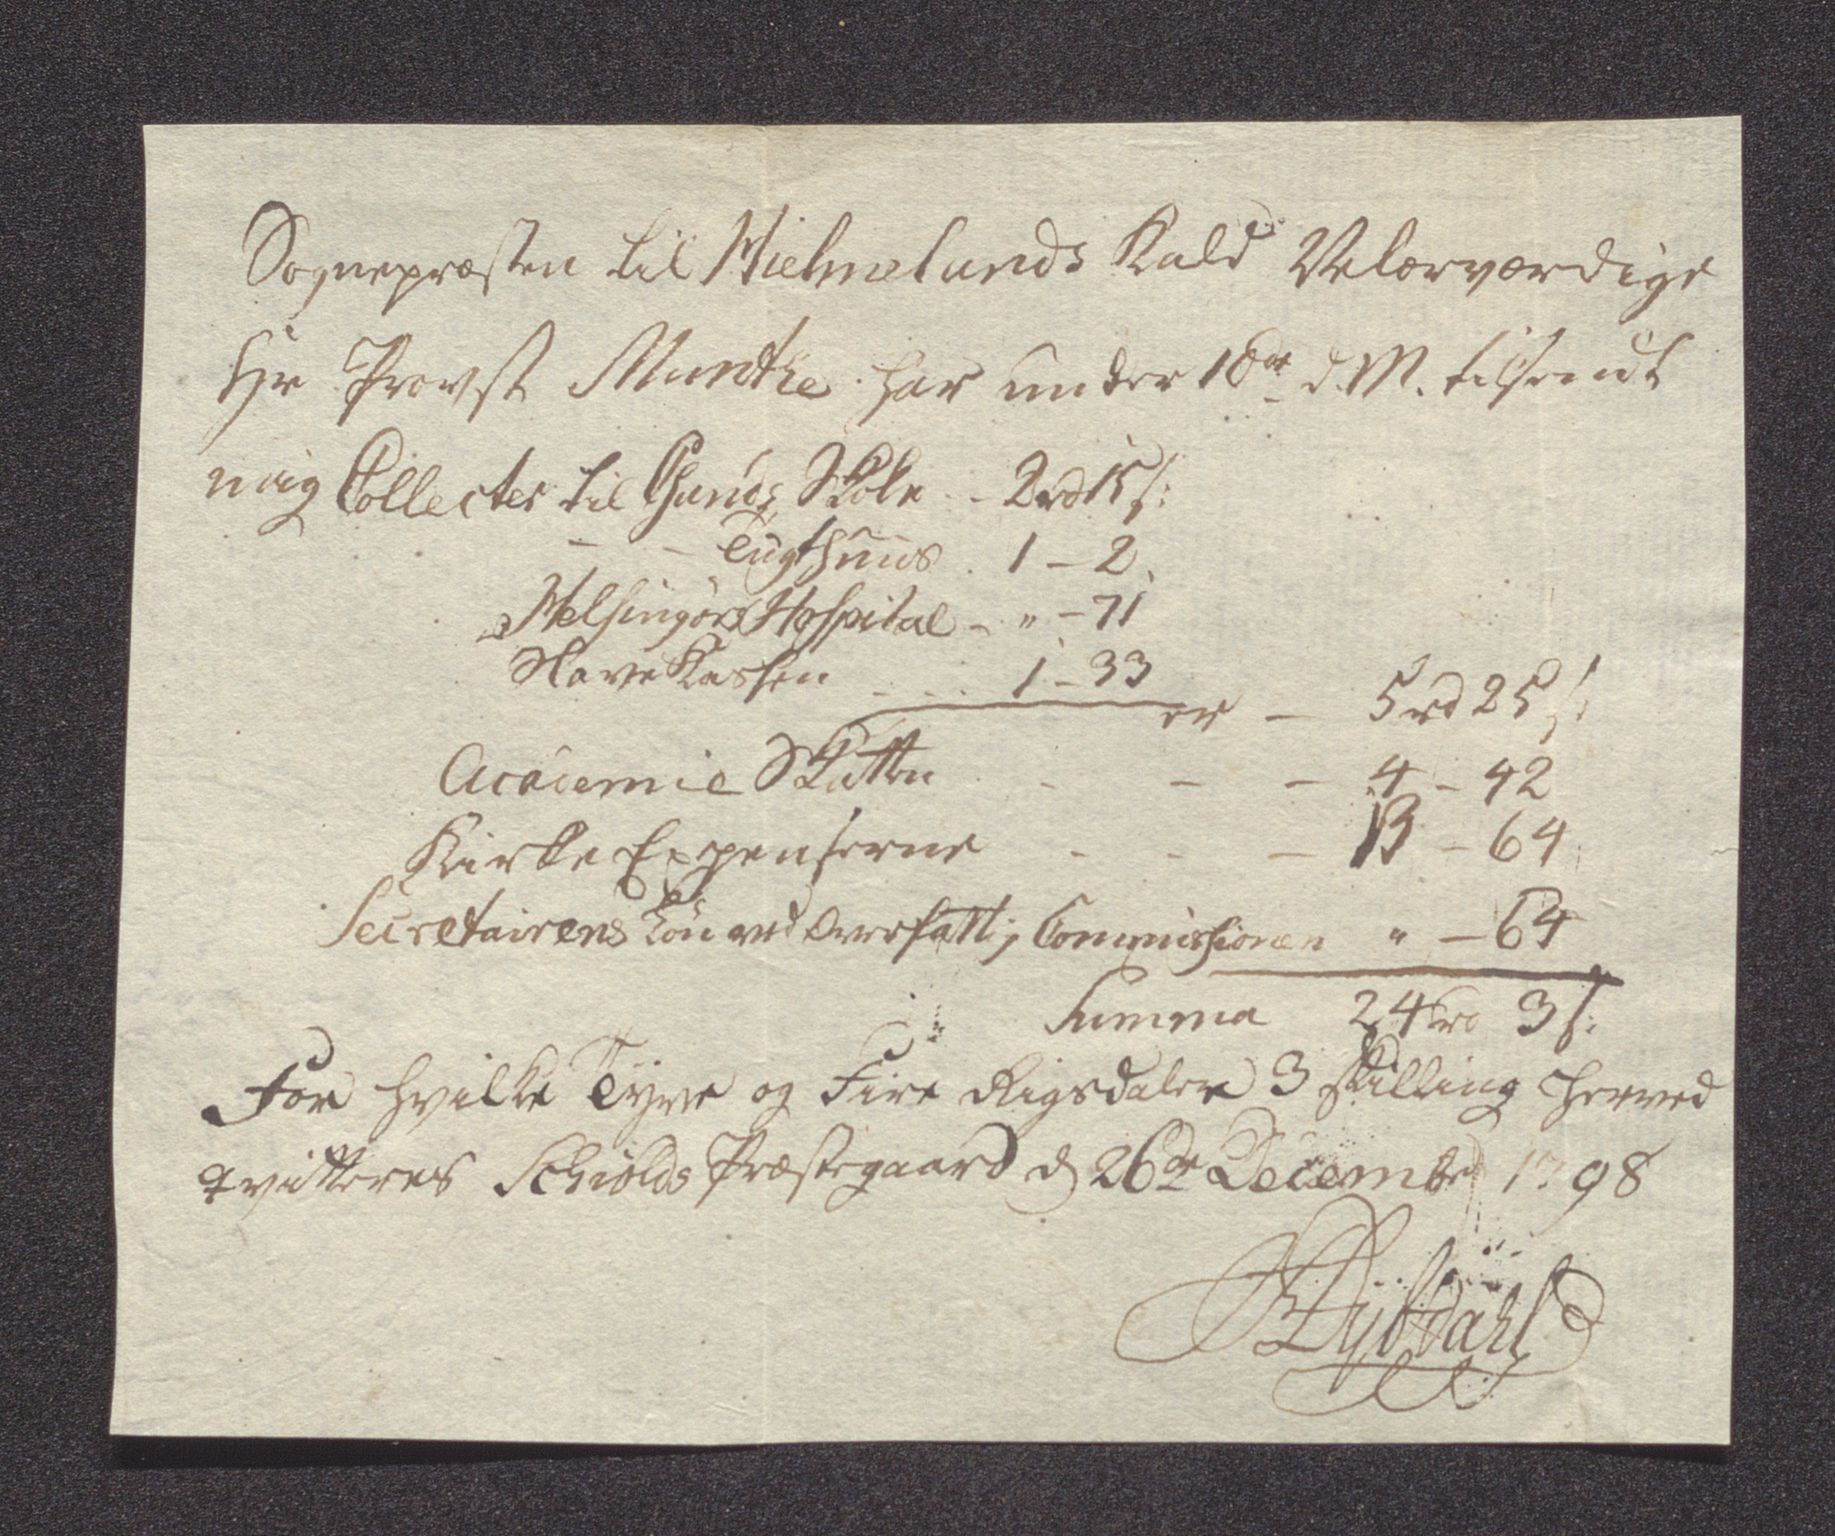 Sognepræsten til Hielmelands Kald Velærværdige
Hr Provst Munthe har under 18de d. M. tilsendt
mig Collecter til Qvands Skole - 2 rd 15 s:
- - Tugthuus . 1 - 2.
Helsingörs Hospital - " - 71
Slave Kassen - - - 1 - 33
er - 5 rd 25 s:
Academie Skatten - - - 4 - 42
Kirke Expenserne - - - 13 - 64
Secretairens Løn ved Overfatt: Commissionen " - 64
Summa 24 rd 3 s:
For hvilke Tyve og Fire Rigsdaler 3 skilling herved
qvitteres Schiolds Præstegaard d 26de Decembr 1798